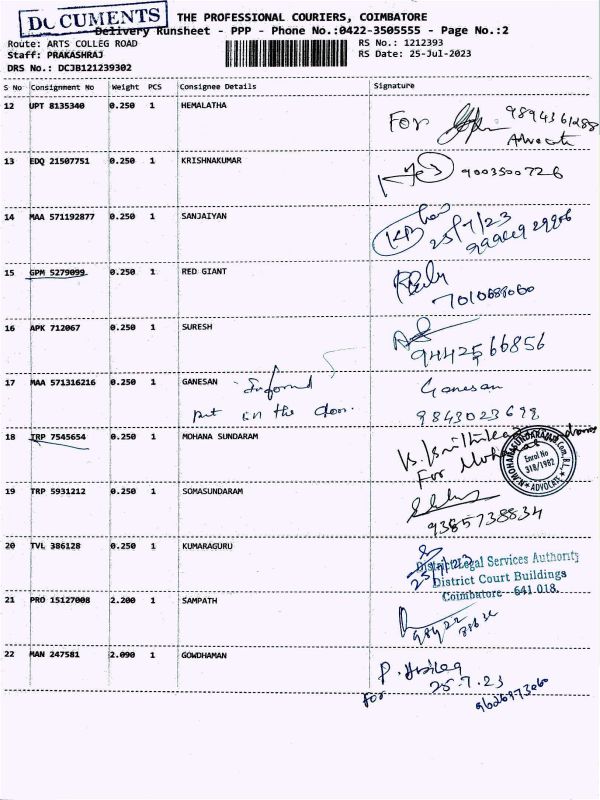 DOCUMENTS
THE PROFESSIONAL COURIERS, COIMBATORE
Delivery Runsheet - PPP - Phone No.:0422-3505555 - Page No.:2
Route: ARTS COLLEG ROAD
RS No.: 1212393
Staff: PRAKASHRAJ
RS Date: 25-Jul-2023
DRS No.: DCJB121239302
S No Consignment No Weight PCS Consignee Details Signature
12 UPT 8135340 0.250 1 HEMALATHA
For 9894361288
Advocate
13 EDQ 21507751 0.250 1 KRISHNAKUMAR
9003500726
14 MAA 571192877 0.250 1 SANJAIYAN
25/7/23
15 GPM 5279099 0.250 1 RED GIANT
16 APK 712067 0.250 1 SURESH
9442566856
17 MAA 571316216 0.250 1 GANESAN Informed Ganesan
put in the door. 9843023698
18 TRP 7545654 0.250 1 MOHANA SUNDARAM
For
Enrol No
318/1982
ADVOCATE
19 TRP 5931212 0.250 1 SOMASUNDARAM
9385738834
20 TVL 386128 0.250 1 KUMARAGURU
25/7/23
District Legal Services Authority
District Court Buildings
Coimbatore - 641 018.
21 PRO 15127008 2.200 1 SAMPATH
22 MAN 247581 2.090 1 GOWDHAMAN
For 25.7.23